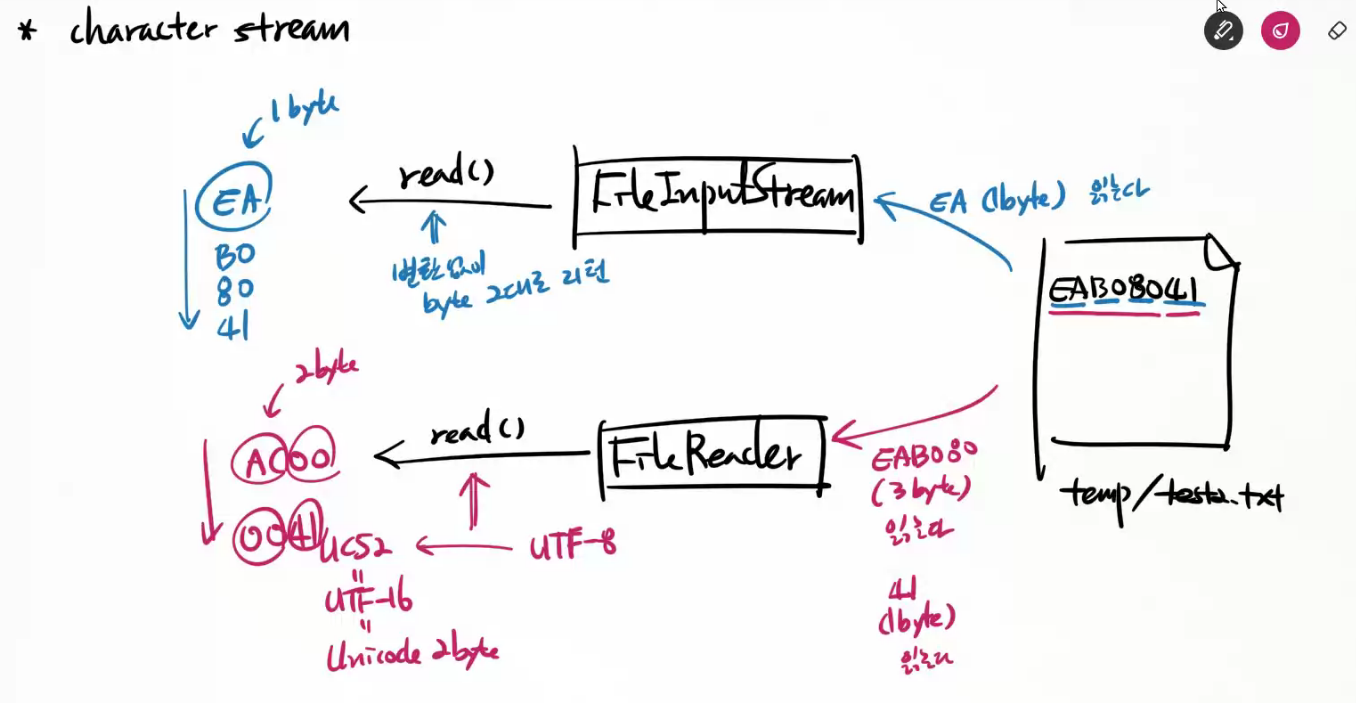 * character stream
1byte
EA
B0
80
41
read()
변환없이
byte 그대로 리턴
FileInputStream
EA (1byte) 읽는다
EAB08041
temp/test2.txt
2byte
AC00
0041
read()
FileReader
EAB080
(3byte)
읽는다
41
(1byte)
읽는다
UCS2
UTF-8
"
UTF-16
"
Unicode 2byte